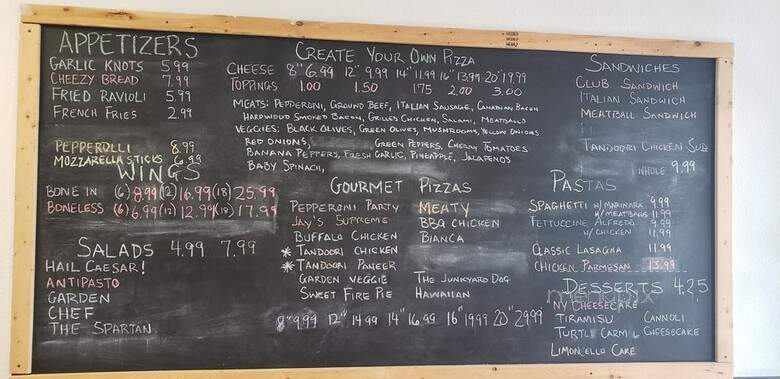 APPETIZERS
GARLIC KNOTS 5.99
CHEEZY BREAD 7.99
FRIED RAVIOLI 5.99
FRENCH FRIES 2.99
PEPPEROLLI 8.99
MOZZARELLA STICKS 6.93
WINGS
BONE IN (6) 8.99 (12) 16.99 (18) 25.99
BONELESS (6) 6.99 (12) 12.99 (18) 17.99
SALADS 4.99 7.99
HAIL CAESAR!
ANTIPASTO
GARDEN
CHEF
THE SPARTAN
CREATE YOUR OWN PIZZA
CHEESE 8" 6.99 12" 9.99 14" 11.99 16" 13.99 20" 19.99
TOPPINGS 1.00 1.50 175 2.00 3.00
MEATS: PEPPERONI, GROUND BEEF, ITALIAN SAUSAGE, CANADIAN BACON
HARDWOOD SMOKED BACON, GRILLED CHICKEN, SALAMI, MEATBALLS
VEGGIES: BLACK OLIVES, GREEN OLIVES, MUSHROOMS, YELLOW ONIONS
RED ONIONS, GREEN PEPPERS, CHERRY TOMATOES
BANANA PEPPERS, FRESH GARLIC, PINEAPPLE, JALAPENOS
BABY SPINACH,
GOURMET PIZZAS
PEPPERONI PARTY MEATY
JAY'S SUPREME BBQ CHICKEN
BUFFALO CHICKEN BIANCA
* TANDOORI CHICKEN
* TANDOORI PANEER
GARDEN VEGGIE THE JUNKYARD DOG
SWEET FIRE PIE HAWAIIAN
8" 9.99 12" 14.99 14" 16.99 16" 19.99 20" 29.99
SANDWICHES
CLUB SANDWICH
ITALIAN SANDWICH
MEATBALL SANDWICH
TANDOORI CHICKEN SUB
WHOLE 9.99
PASTAS
SPAGHETTI W/ MARINARA 9.99
W/ MEATBALLS 11.99
FETTUCCINE ALFREDO 9.99
W/ CHICKEN 11.99
CLASSIC LASAGNA 11.99
CHICKEN PARMESAN 13.99
DESSERTS 4.25
NY CHEESECAKE
TIRAMISU CANNOLI
TURTLE CARML CHEESECAKE
LIMONCELLO CAKE
menupix